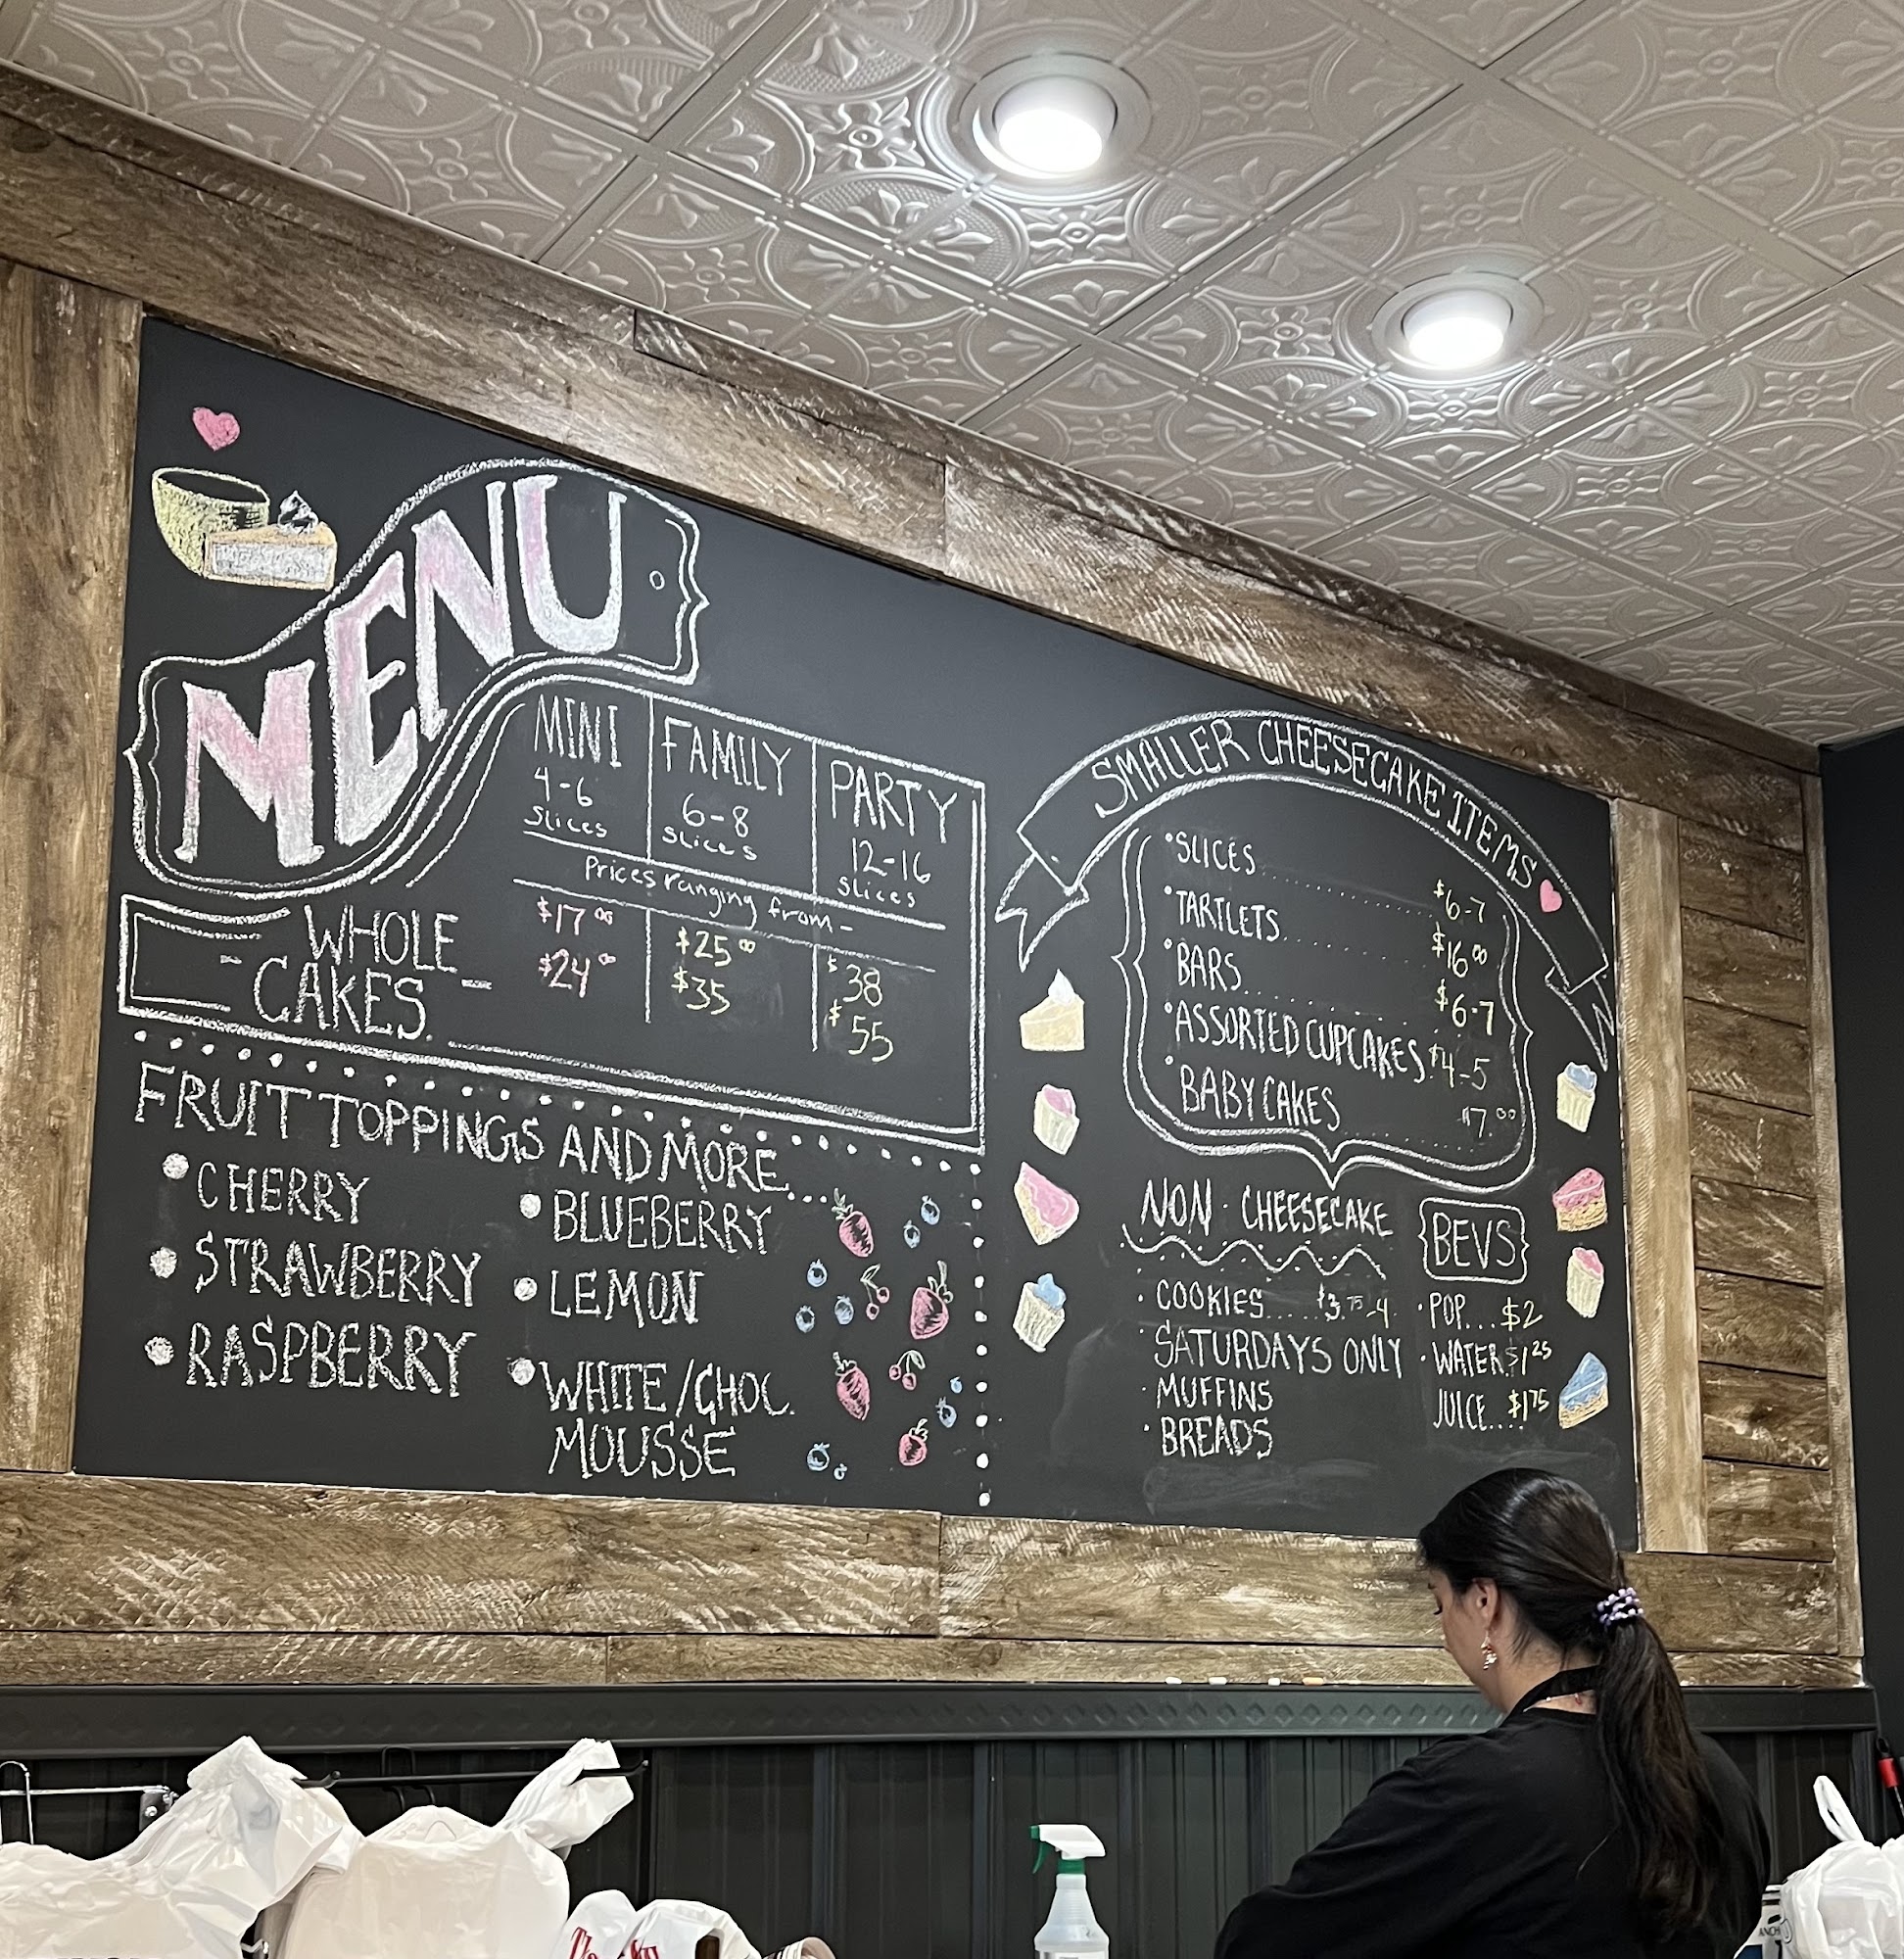 MENU
MINI
4-6
slices
FAMILY
6-8
slices
PARTY
12-16
slices
Prices ranging from-
WHOLE
-CAKES-
$17.00
$24.00
$25.00
$35
$38
$55
FRUIT TOPPINGS AND MORE...
• CHERRY
• STRAWBERRY
• RASPBERRY
• BLUEBERRY
• LEMON
• WHITE/CHOC.
MOUSSE
SMALLER CHEESECAKE ITEMS
• SLICES........ $6-7
• TARTLETS........ $16.00
• BARS........ $6-7
• ASSORTED CUPCAKES. $4-5
• BABY CAKES........ $7.00
NON-CHEESECAKE
• COOKIES.... $3.75-4
• SATURDAYS ONLY
• MUFFINS
• BREADS
BEVS
• POP... $2
• WATER $1.25
JUICE... $1.75